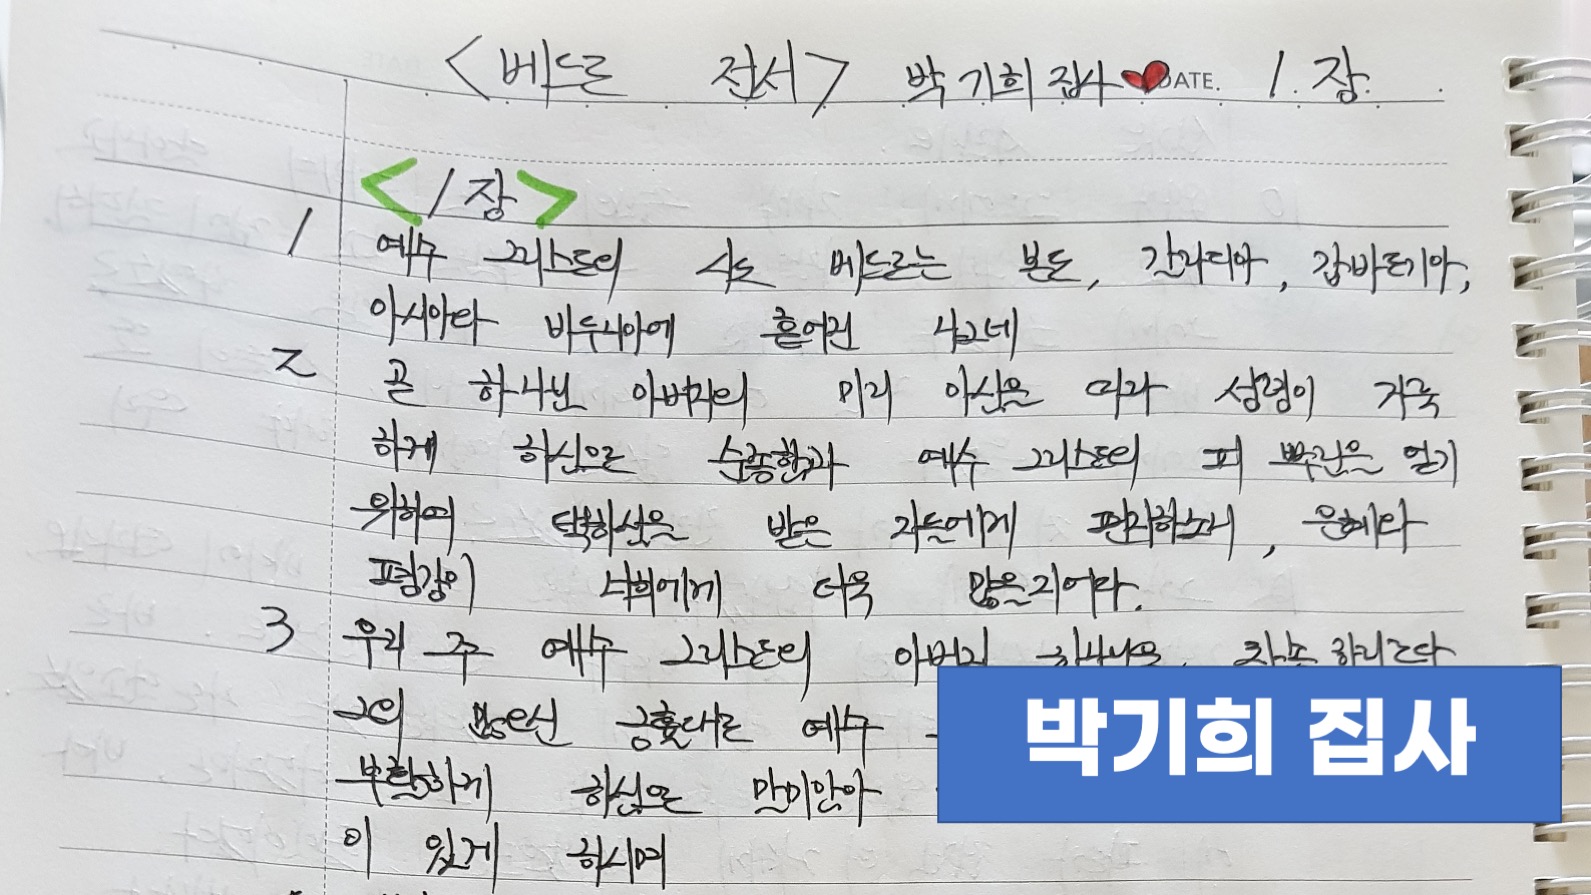 <베드로 전서> 박기희 집사 DATE. 1. 장.
<1장>
1 예수 그리스도의 사도 베드로는 본도, 갈라디아, 갑바도기아,
아시아와 비두니아에 흩어진 나그네
2 곧 하나님 아버지의 미리 아심을 따라 성령이 거룩
하게 하심으로 순종함과 예수 그리스도의 피 뿌림을 얻기
위하여 택하심을 받은 자들에게 편지하노니, 은혜와
평강이 너희에게 더욱 많을지어다.
3 우리 주 예수 그리스도의 아버지 하나님을 찬송하리로다
그의 많으신 긍휼대로 예수
부활하게 하심으로 말미암아
이 있게 하시며
박기희 집사